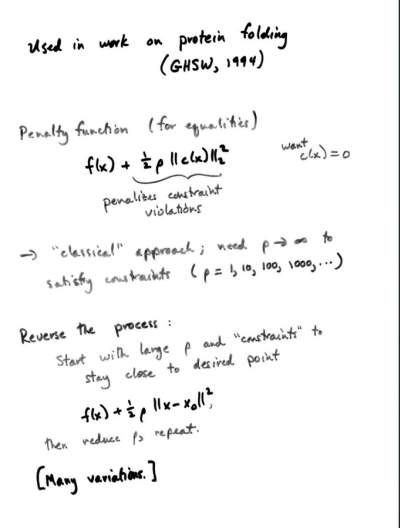 Used in work on protein folding
(GHSW, 1994)
Penalty function (for equalities)
f(x) + ½ ρ ‖c(x)‖₂² want c(x) = 0
penalizes constraint
violations
→ "classical" approach; need ρ → ∞ to
satisfy constraints (ρ = 1, 10, 100, 1000, ...)
Reverse the process:
Start with large ρ and "constraints" to
stay close to desired point
f(x) + ½ ρ ‖x - x₀‖²,
then reduce ρ, repeat.
[Many variations.]